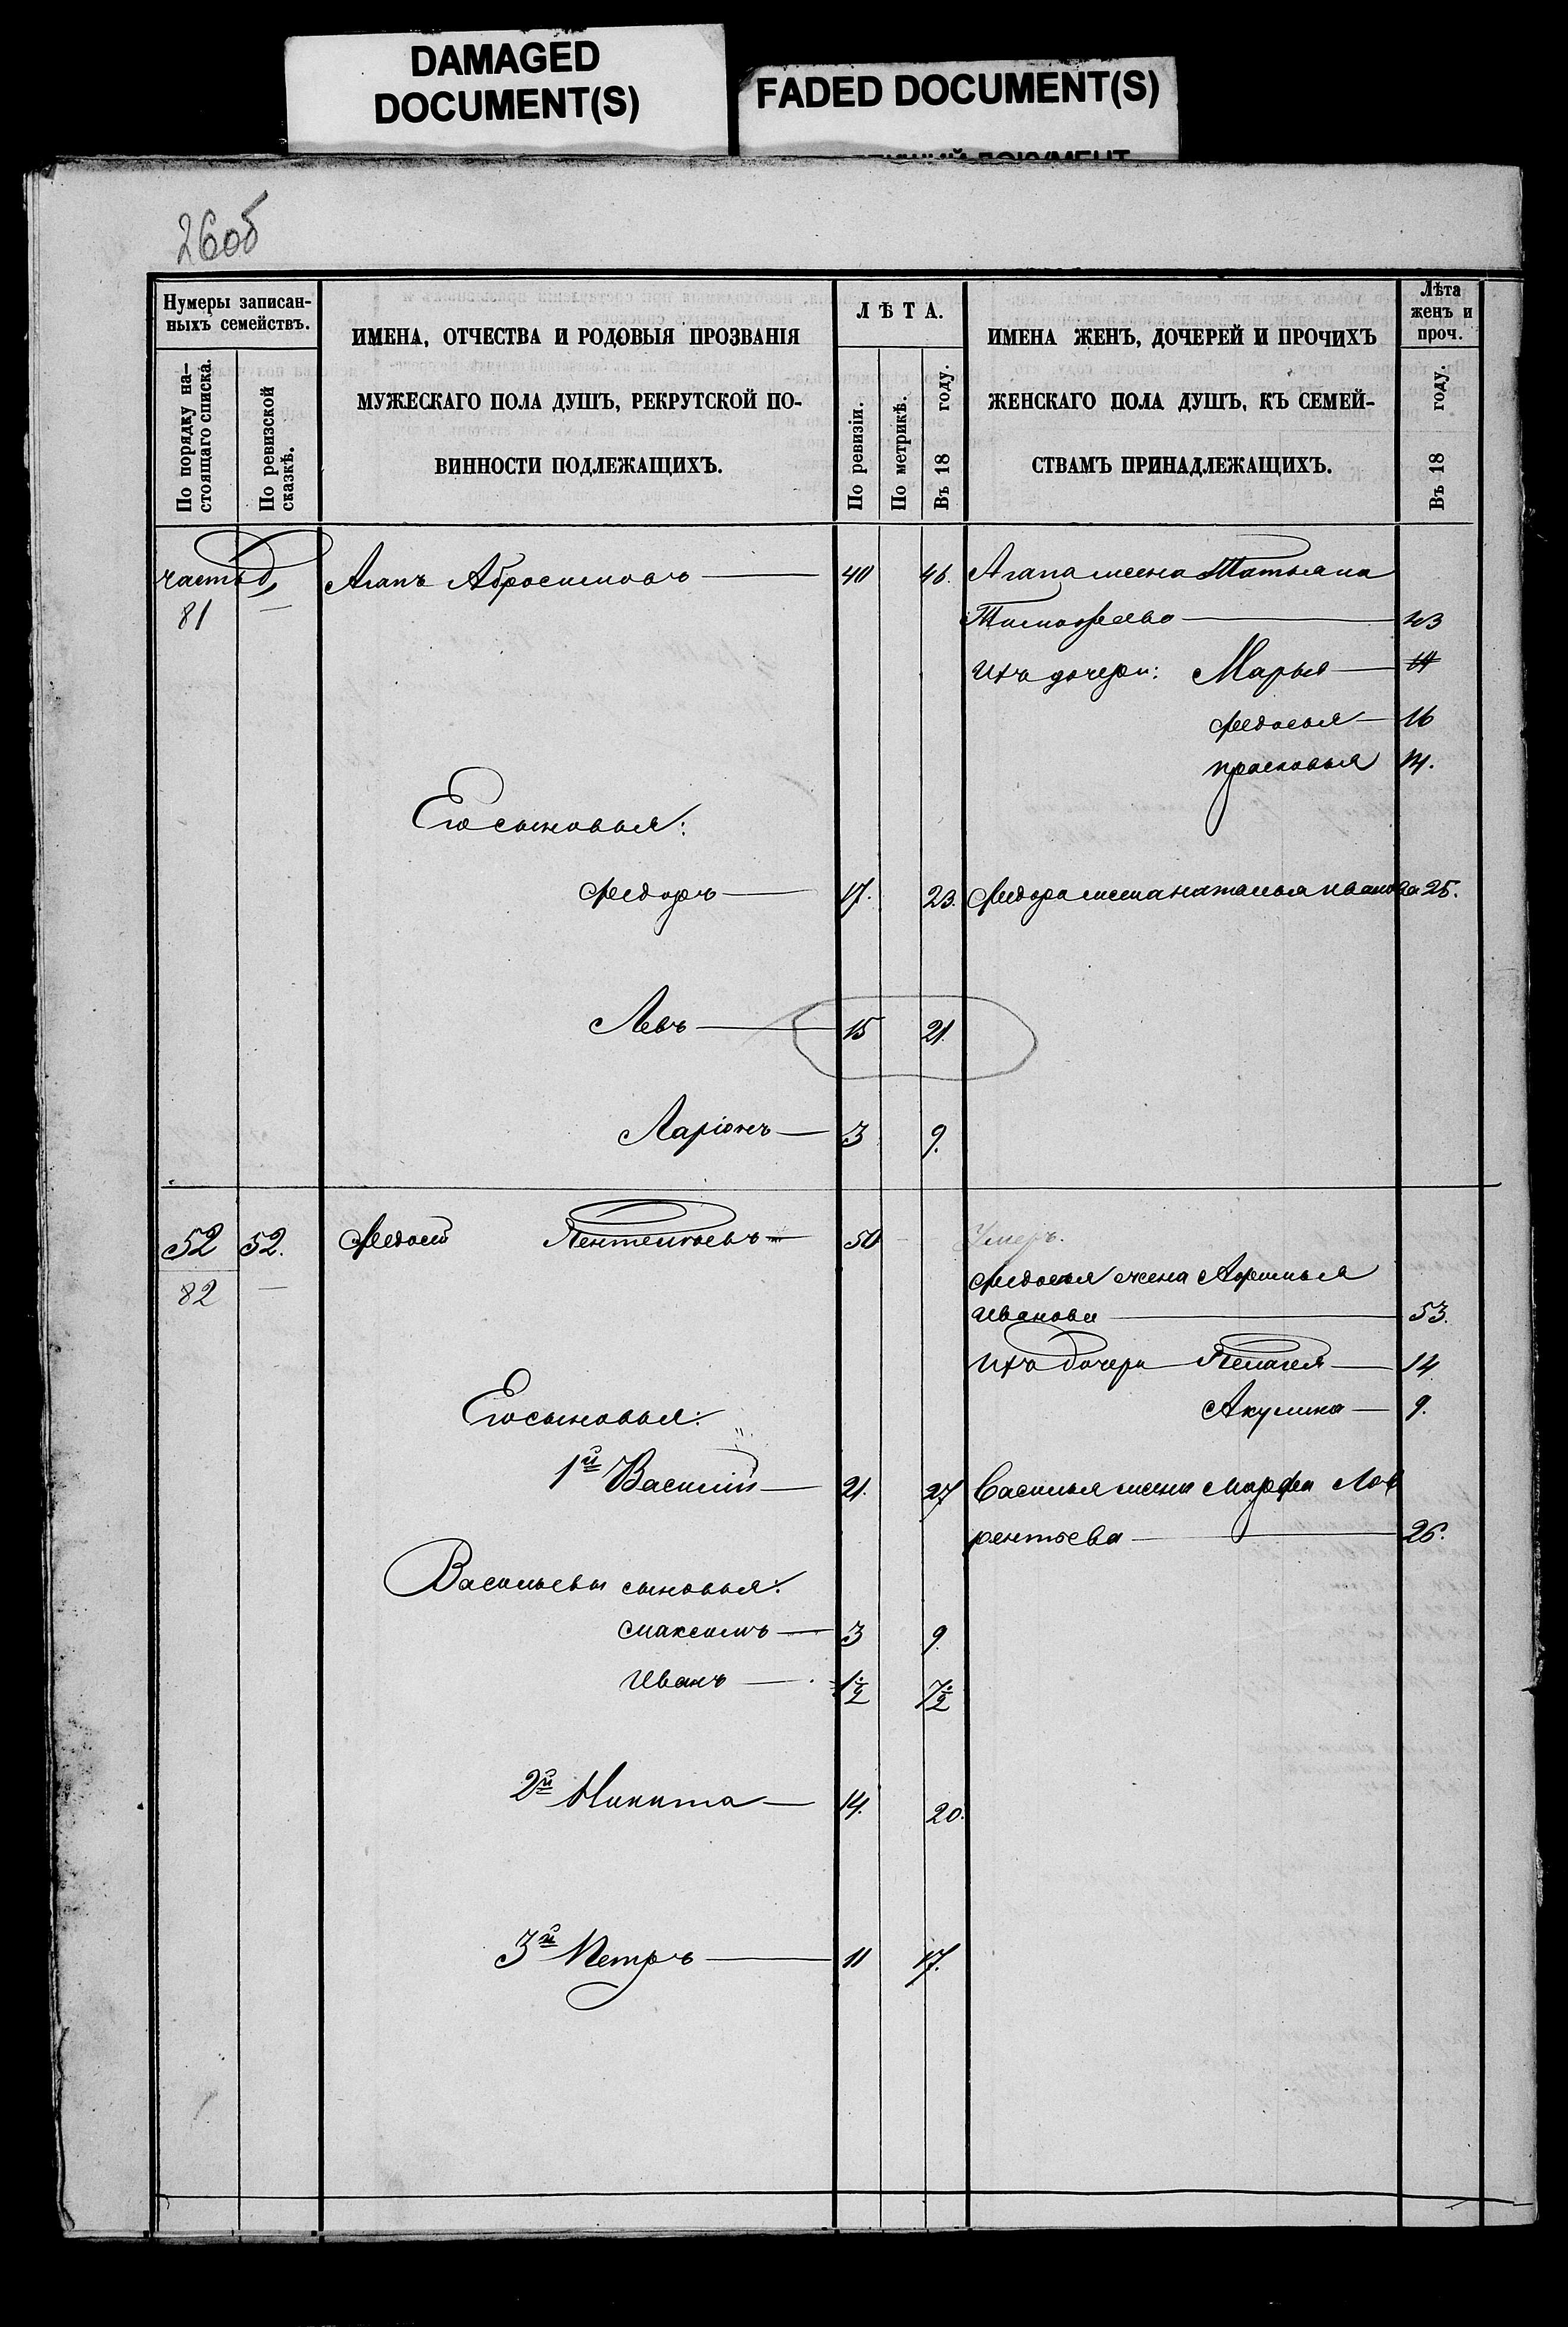 DAMAGED
DOCUMENT(S)
FADED DOCUMENT(S)
26об
Нумеры записан-
ныхъ семействъ.
По порядку на-
стоящаго списка.
По ревизской
сказкѣ.
ИМЕНА, ОТЧЕСТВА И РОДОВЫЯ ПРОЗВАНІЯ
МУЖЕСКАГО ПОЛА ДУШЪ, РЕКРУТСКОЙ ПО-
ВИННОСТИ ПОДЛЕЖАЩИХЪ.
ЛѢТА.
По ревизіи.
По метрикѣ.
Въ 18 году.
ИМЕНА ЖЕНЪ, ДОЧЕРЕЙ И ПРОЧИХЪ
ЖЕНСКАГО ПОЛА ДУШЪ, КЪ СЕМЕЙ-
СТВАМЪ ПРИНАДЛЕЖАЩИХЪ.
Лѣта
женъ и
проч.
Въ 18 году.
Агапъ Абросимовъ — 40 46. Агапа жена Татьяна
81 —
Тимофеева — 43
Ихъ дочери: Марья —
Федосья — 16
Прасковья 14.
Его сыновья:
Федоръ — 17. 23. Федора жена наталья иванова 25.
Левъ — 15 21.
Ларіонъ — 3 9.
52 52. Федосей Пентельевъ — 50 Умеръ.
82 —
Федосея жена Афимья
Иванова — 53.
Ихъ дочери Пелагея — 14
Акулина — 9.
Его сыновья:
1й Василій — 21. 27 Василья жена Марфа Лав
рентьева — 26.
Васильевы сыновья:
Максимъ — 3 9.
Иванъ — 1½ 7½
2й Никита — 14. 20.
3й Петръ — 11 17.